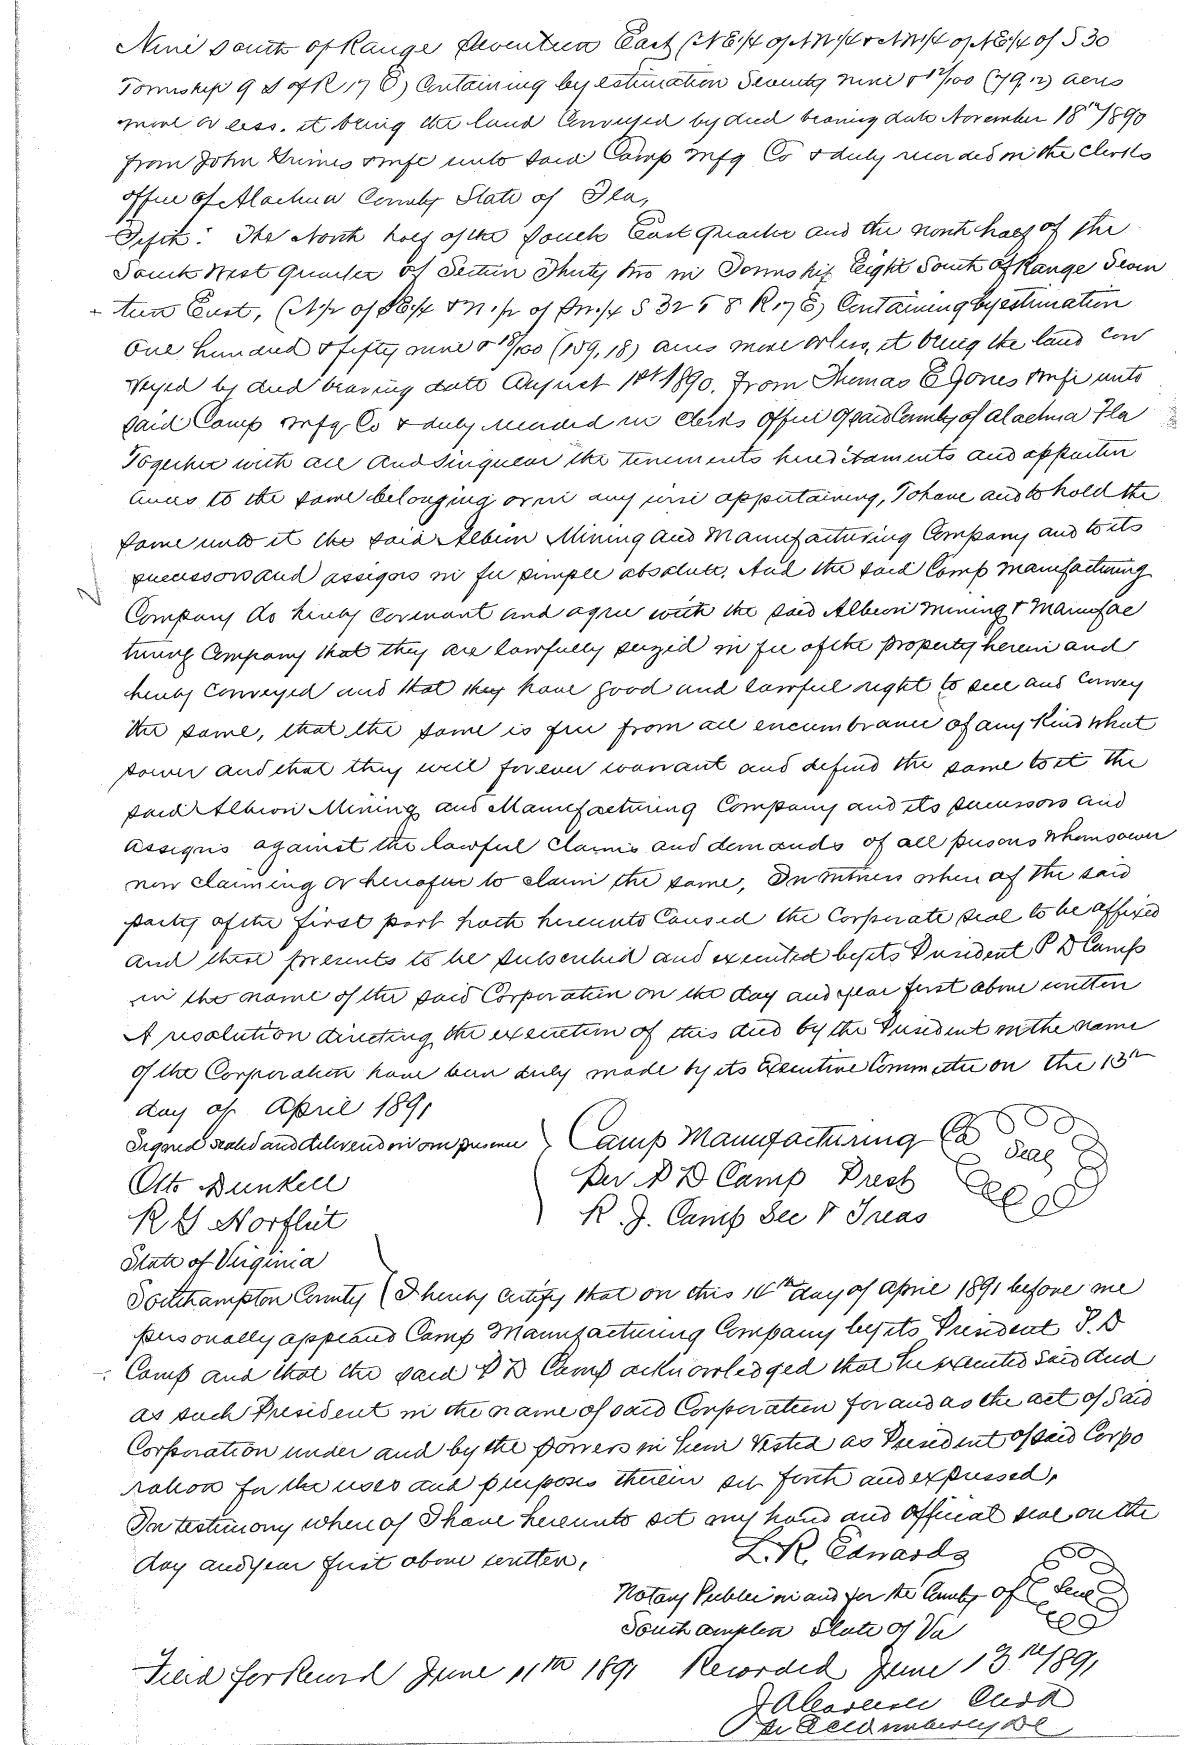 Nine South of Range Seventeen East (NE1/4 of NW1/4 & NW1/4 of NE1/4 of S 30
Township 9 S of R 17 E) Containing by estimation Seventy nine & 12/100 (79.12) acres
more or less. it being the land Conveyed by deed bearing date November 18th/890
from John Grimes & wife unto said Camp Mfg Co & duly recorded in the Clerks
office of Alachua County State of Fla,
Fifth: The North half of the South East quarter and the north half of the
South West quarter of Section Thirty two in Township Eight South of Range Seven
teen East, (N1/2 of SE1/4 & N.1/2 of SW.1/4 S 32 T 8 R 17 E) Containing by estimation
One hundred & fifty nine & 18/100 (159,18) acres more or less, it being the land con
veyed by deed bearing date August 1st 1890. from Thomas E Jones & wife unto
said Camp Mfg Co & duly recorded in Clerks Office of said County of Alachua Fla
Together with all and singular the tenements hereditaments and appurten
ances to the same belonging or in any wise appertaining, To have and to hold the
same unto it the said Albion Mining and Manufacturing Company and to its
successors and assigns in fee simple absolute. And the said Camp Manufacturing
Company do hereby covenant and agree with the said Albion Mining & Manufac
turing Company that they are lawfully seized in fee of the property herein and
hereby conveyed and that they have good and lawful right to sell and convey
the same, that the same is free from all encumbrance of any Kind what
soever and that they will forever warrant and defend the same to it the
said Albion Mining and Manufacturing Company and its successors and
assigns against the lawful claims and demands of all persons whomsoever
now claiming or hereafter to claim the same, In witness where of the said
party of the first part hath hereunto Caused the Corporate seal to be affixed
and these presents to be subscribed and executed by its President P D Camp
in the name of the said Corporation on the day and year first above written
A resolution directing the execution of this deed by the President in the name
of the Corporation have been duly made by its Executive Committee on the 13th
day of April 1891
Signed sealed and delivered in our presence Camp Manufacturing Co Seal
Otto Dunkell Per P D Camp Prest
R G Norfleet R. J. Camp Sec & Treas
State of Virginia
Southampton County I hereby certify that on this 16th day of April 1891 before me
personally appeared Camp Manufacturing Company by its President P. D
Camp and that the said P D Camp acknowledged that he executed said deed
as such President in the name of said Corporation for and as the act of Said
Corporation under and by the powers in him Vested as President of said Corpo
ration for the uses and purposes therein set forth and expressed,
In testimony where of I have hereunto set my hand and official seal on the
day and year first above written,
L. R. Edwards
Notary Public in and for the County of Seal
Southampton State of Va
Filed for Record June 11th 1891 Recorded June 13th/891
Clerk